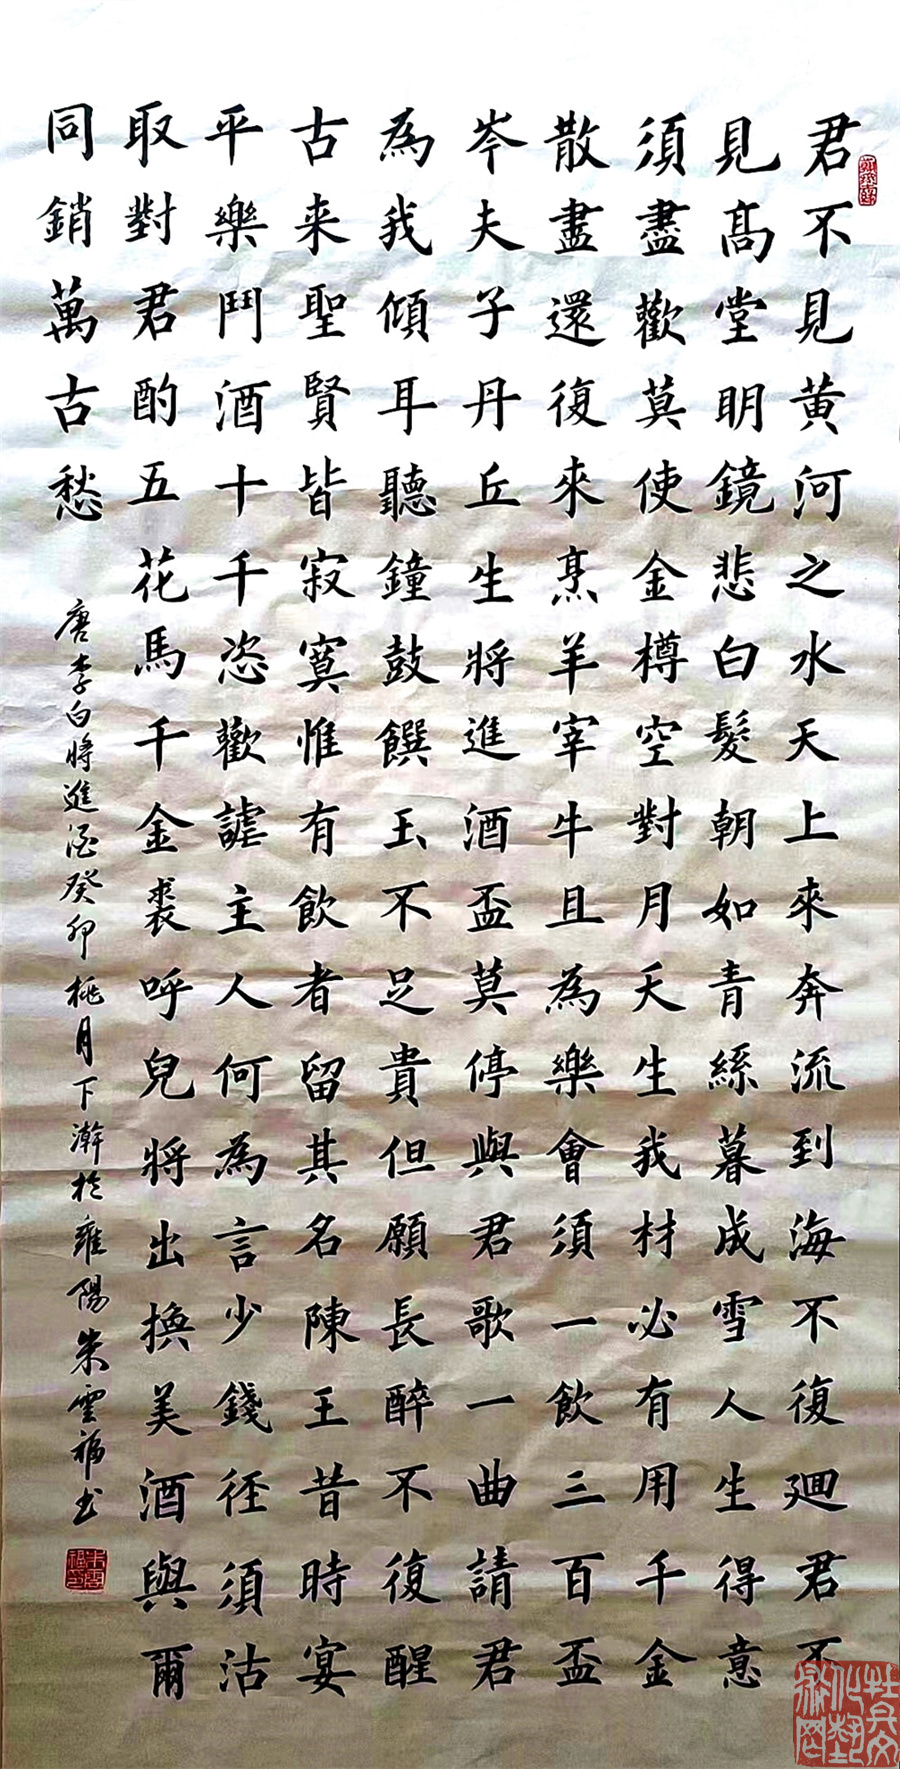 君不見黄河之水天上來奔流到海不復迴君不
見髙堂明鏡悲白髮朝如青絲暮成雪人生得意
須盡歡莫使金樽空對月天生我材必有用千金
散盡還復來烹羊宰牛且為樂會須一飲三百盃
岑夫子丹丘生將進酒盃莫停與君歌一曲請君
為我傾耳聽鐘鼓饌玉不足貴但願長醉不復醒
古来聖賢皆寂寞惟有飲者留其名陳王昔時宴
平樂鬥酒十千恣歡謔主人何為言少錢径須沽
取對君酌五花馬千金裘呼兒將出換美酒與爾
同銷萬古愁
唐李白將進酒癸卯桃月下澣於雍陽朱雲福书